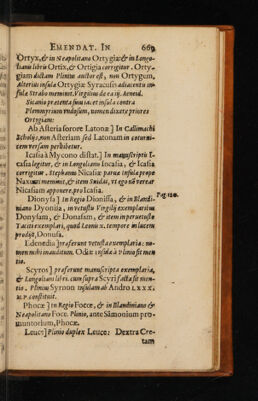 EMENDAT. IN 669
Ortyx, & in Neapolitano Ortygiæ & in Longo-
liano libris Ortix, & Ortigia corrigitur. Orty-
giam dictam Plinius auctor est, non Ortygum,
Alterius insulæ Ortygiæ Syracusis adiacentis in-
sulæ Strabo meminit, Virgilius de ea iij. Aeneid.
Sicanio prætenta sinu iacet insula contra
Plemmyrium vndosum, nomen dixere priores
Ortygiam:
Ab Asteria sorore Latonæ ] In Callimachi
Scholijs, non Asteriam sed Latonam in coturni-
cem versam perhibetur.
Icasia à Mycono distat.] In manuscriptis I-
casia legitur, & in Longoliano Incasia, & Icasia
corrigitur. Stephanus Nicasiæ paruæ insulæ prope
Naxum meminit, & item Suidas,
Nicasiam apponere, pro Icasia. Pag. 120.
Dionysa] In Regio Dionissa, & in Blandi-
niano Dyonisa, in vetustis Virgilij exemplaribus
Donysam, & Donusam, & item in peruetusto
Taciti exemplari, quod Leonis x. tempore in lucem
prodijt, Donusa.
præferunt vetusta exemplaria: no-
men mihi inauditum. Odiæ insulæ à Plinio fit men
tio.
Scyros] præferunt manuscripta exemplaria,
& Longoliani libri. cum supra Scyri facta sit men-
tio. Plinius Syrnon insulam ab Andro LXXX.
M.P. constituit.
Phocæ] In Regio Focæ, & in Blandiniano &
Neapolitano Foce. Plinio, ante Samonium pro-
muntorium, Phocæ.
Leuce] Plinio duplex Leuce: Dextra Cre-
tam